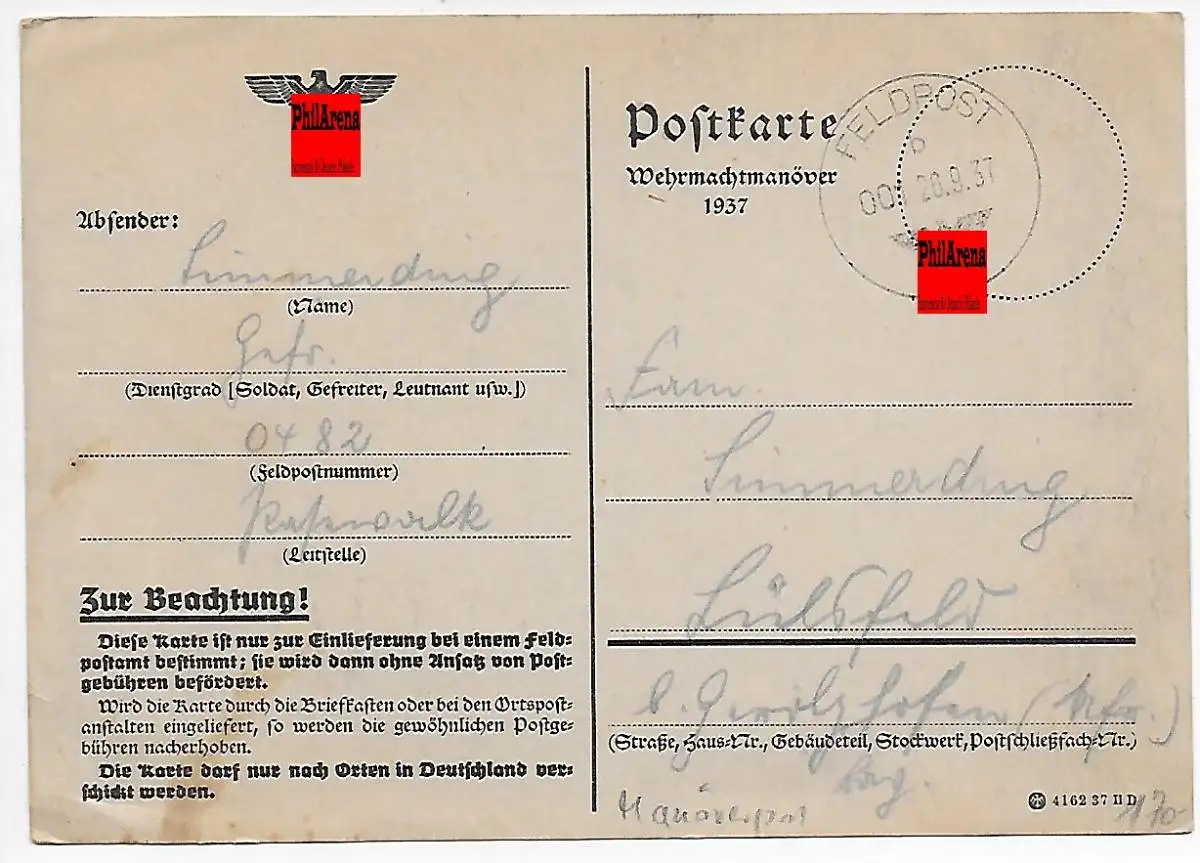 PhilArena
Absender:
Simmerding
(Name)
Gefr.
(Dienstgrad [Soldat, Gefreiter, Leutnant usw.])
0482
(Feldpostnummer)
Paßewalk
(Leitstelle)
Zur Beachtung!
Diese Karte ist nur zur Einlieferung bei einem Feld-
postamt bestimmt; sie wird dann ohne Ansatz von Post-
gebühren befördert.
Wird die Karte durch die Briefkasten oder bei den Ortspost-
anstalten eingeliefert, so werden die gewöhnlichen Postge-
bühren nacherhoben.
Die Karte darf nur nach Orten in Deutschland ver-
schickt werden.
Postkarte
Wehrmachtmanöver
1937
FELDPOST
b
20.9.37
PhilArena
Fam.
Simmerding
Lülsfeld
b. Gerolzhofen (Ufr.)
(Straße, Haus-Nr., Gebäudeteil, Stockwerk, Postschließfach-Nr.)
Bay.
Manöverpost
4162 37 II D